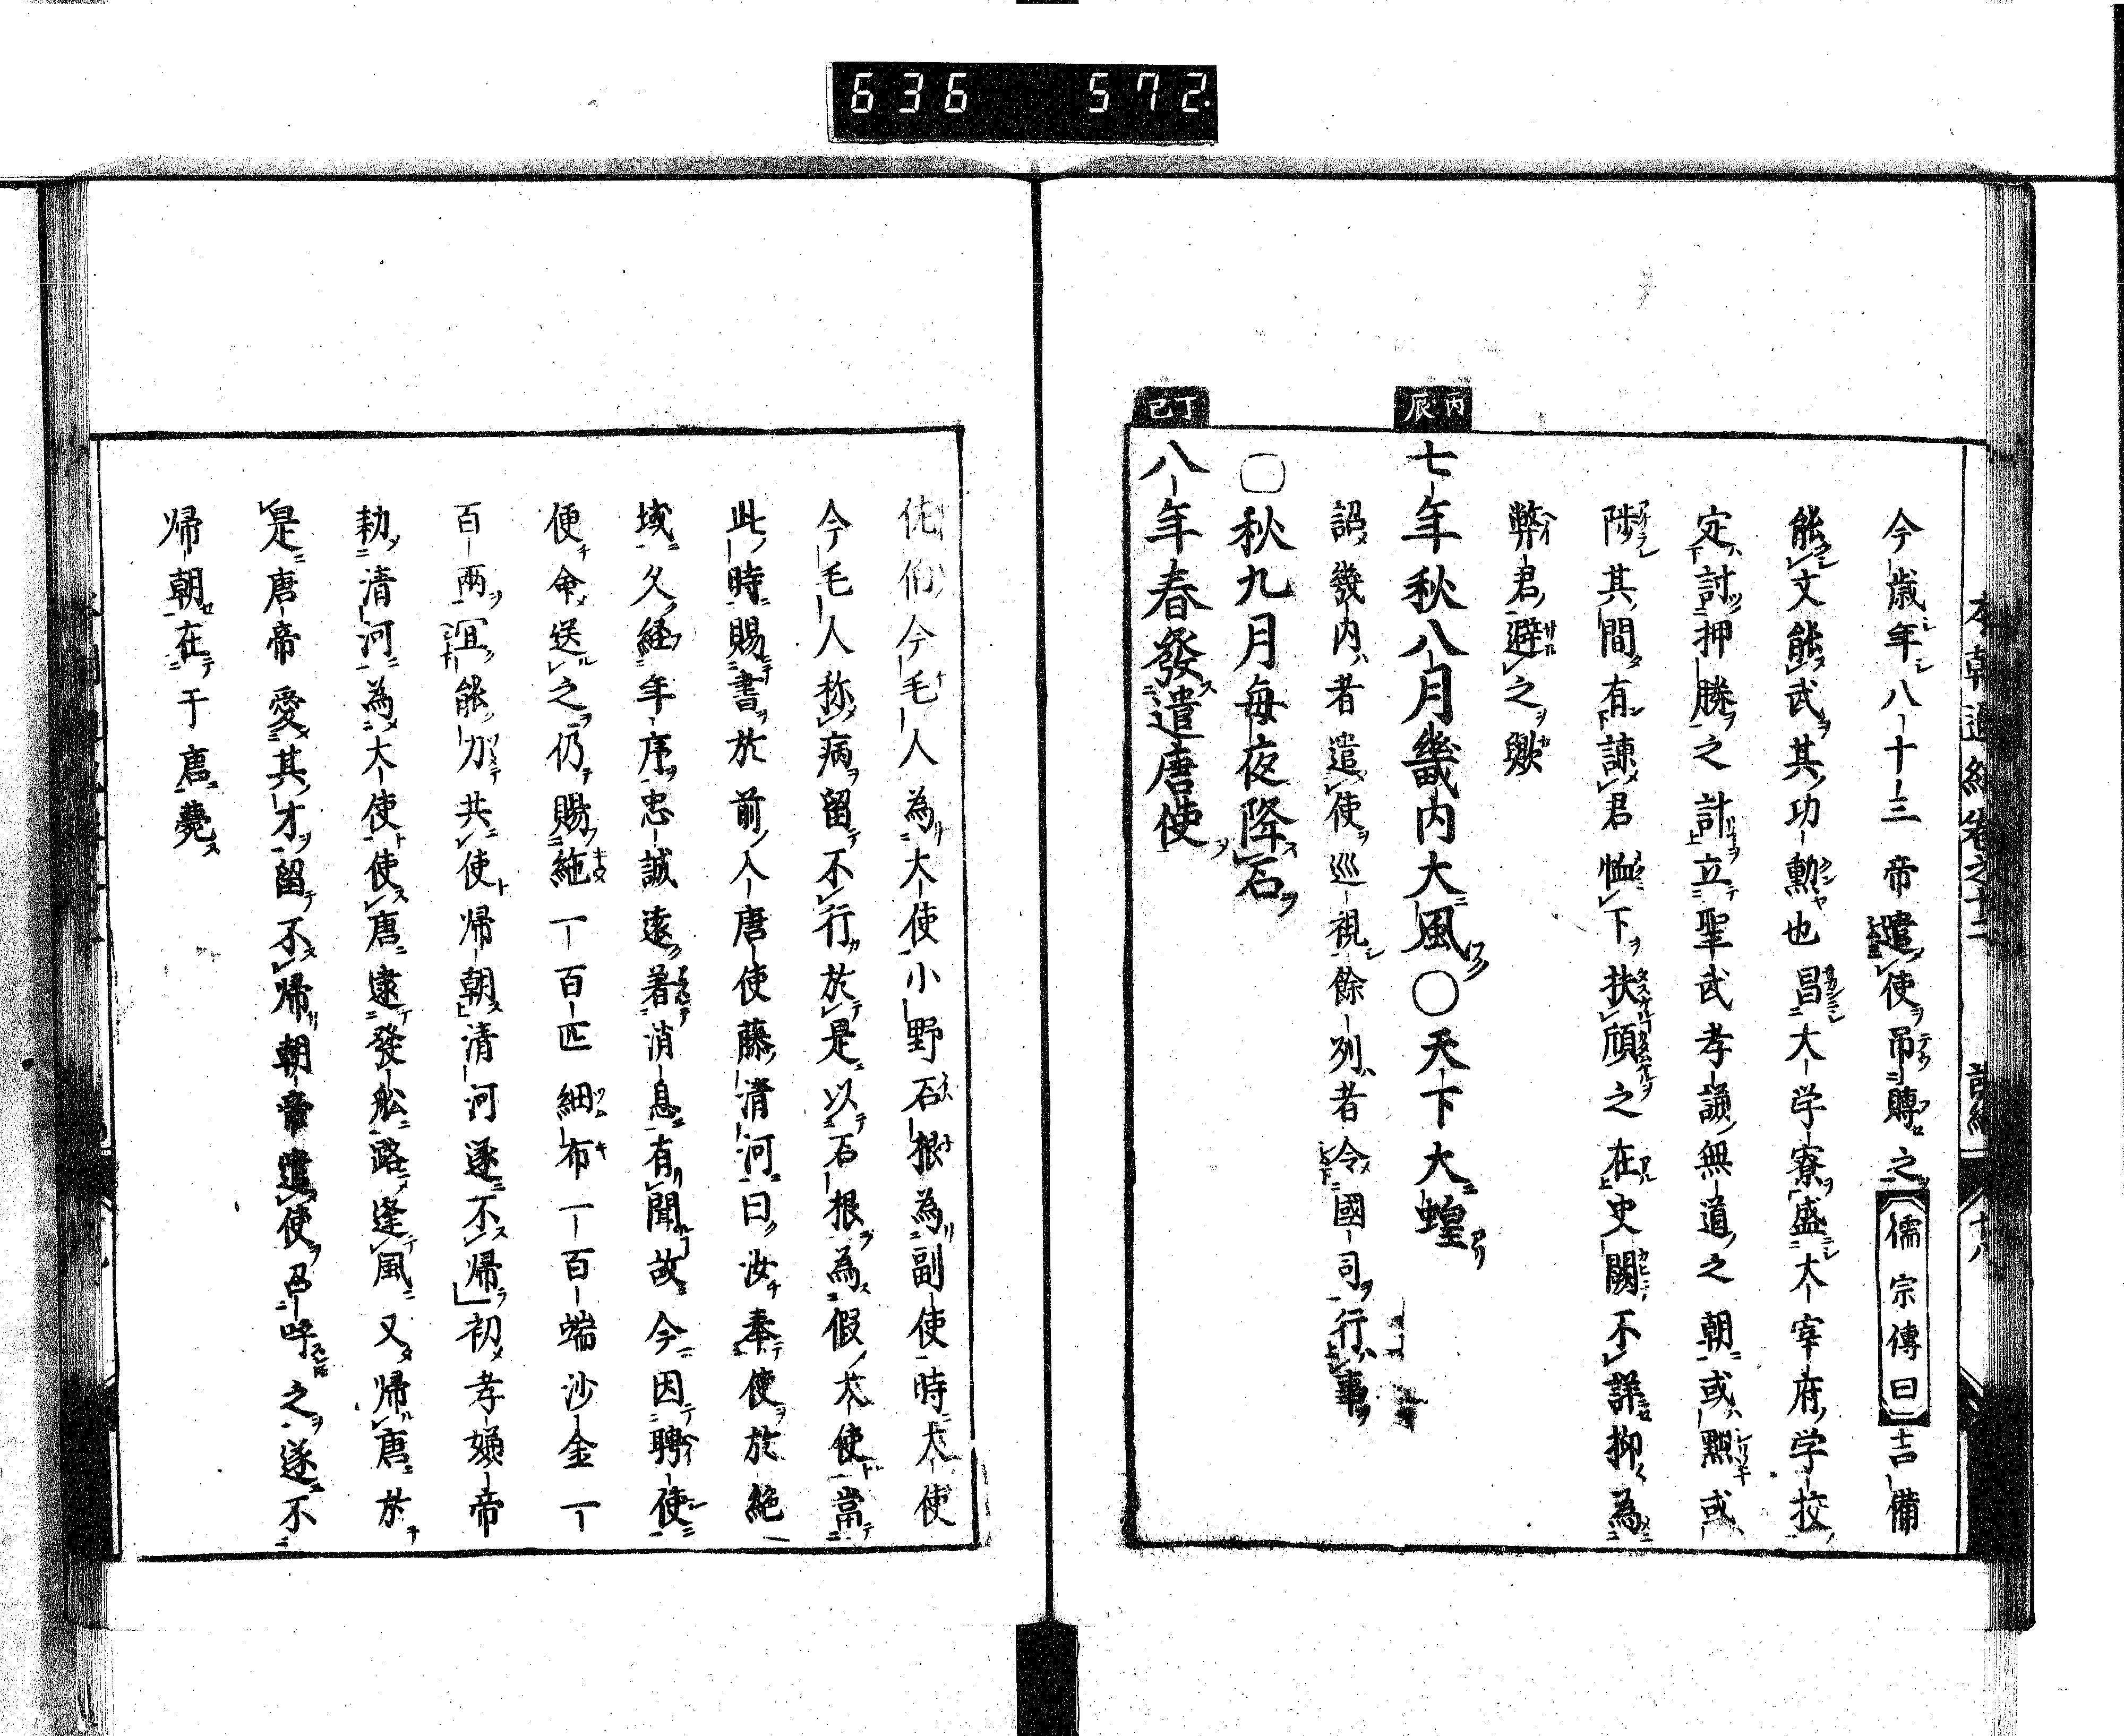 636 572.
本朝通紀卷之十二 前紀 十八
今歳年八十三帝遣使吊賻之儒宗傳曰吉備
能文能武其功勲也昌大学寮盛太宰府学校
定討押勝之計立聖武孝謙無道之朝或黙或
陟其間有諫君恤下扶頎之在史闕不詳抑為
弊君避之歟
丙辰
七年秋八月畿内大風○天下大蝗
詔畿内者遣使巡視餘列者令國司行事
○秋九月毎夜降石
丁巳
八年春發遣唐使
佐伯今毛人為大使小野石根為副使時大使
今毛人称病留不行於是以石根為假大使當
此時賜書於前入唐使藤清河曰汝奉使於絶
域久経年序忠誠遠著消息有聞故今因聘使
便命送之仍賜絁一百匹細布一百端沙金一
百両宜能力共使帰朝清河遂不帰初孝嫌帝
勅清河為大使使唐逮發舩路逢風又帰唐於
是唐帝愛其才留不帰朝帝遣使召呼之遂不
帰朝在于唐薨